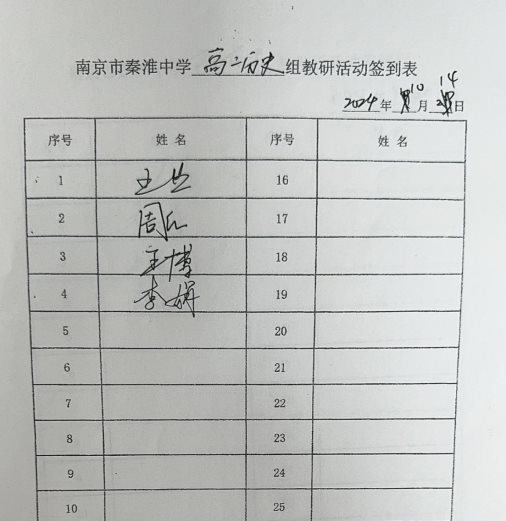 南京市秦淮中学高二历史组教研活动签到表
2024年10月14日
序号 姓名 序号 姓名
1 王 16
2 周 17
3 王博 18
4 李娟 19
5 20
6 21
7 22
8 23
9 24
10 25